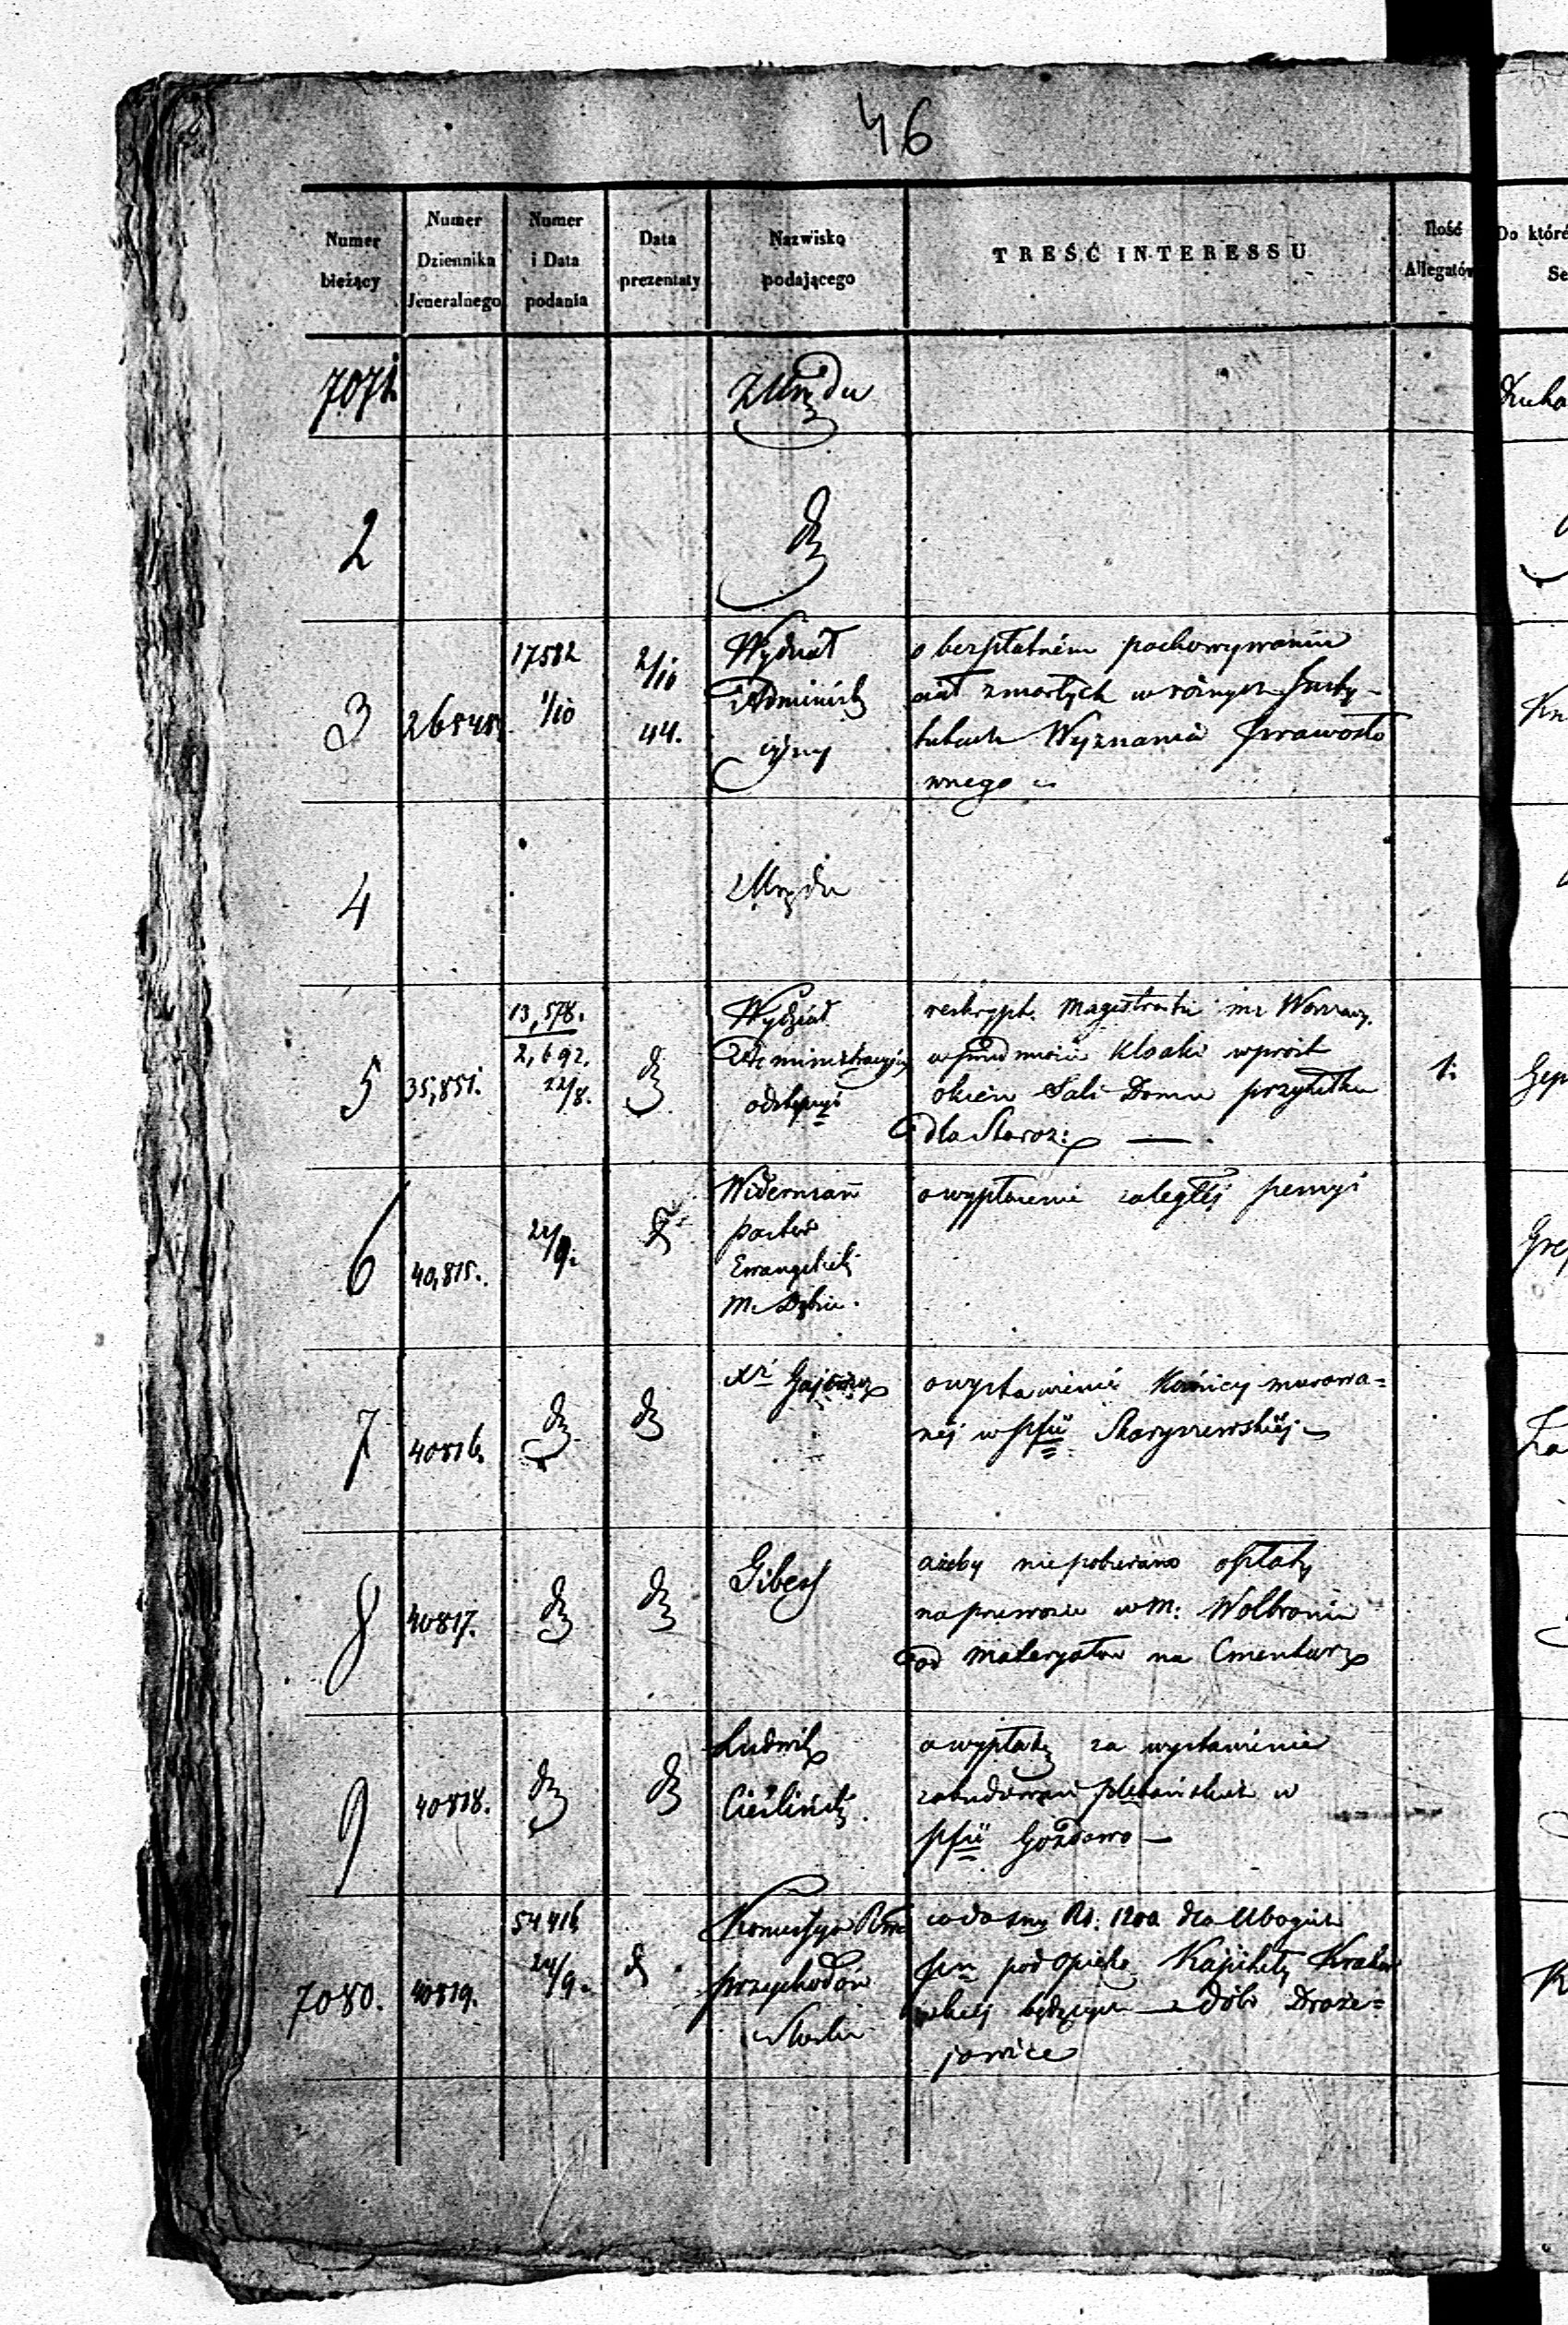 46
Numer bieżący
Numer Dziennika Jeneralnego
Numer i Data podania
Data prezentaty
Nazwisko podającego
TREŚĆ INTERESSU
Ilość Allegatów
Do któré
Se
7071.
Z Urzędu
2
dt
3
26848.
17582
1/10
2/10
44.
Wydział
Administr
cyjny
o bezpłatném pochowywaniu
ciał zmarłych w różnych Insty-
tutach Wyznania Prawosła
wnego
4
Z Urzędu
5
35,851.
13,578.
2,692.
22/8.
dt
Wydział
Administracyjny
reskrypt. Magistratu m. Warszawy.
w przedmiocie Kloaki wprost
okien Sali Domu przytułku
dla Staroz:
1.
6
40,815.
24/9.
Widerman
pastor
Ewangelicki
M. Dąbie.
o wypłacenie zaległéj pensyi
7
40816.
dt
dt
o wystawienie Kośnicy murowa=
néj w pfii Skaryszewskiéj
8
40817.
dt
dt
ażeby nie pobierano opłaty
na przewozie w M: Wolbromiu
od materyałów na Cmentarz
9
40818.
dt
dt
Ludwik
Cieśliński.
o wypłatę za wystawienie
zabudowań plebańskich w
pfii Gozdowo
7080.
40819.
54416
24/9.
Kommissya Rzą
Przychodów
Skarbu
co do sumy Rs. 1200 dla Ubogich
pod opieką Kapituły Krakow
skiej będących z dóbr Droże=
jowice